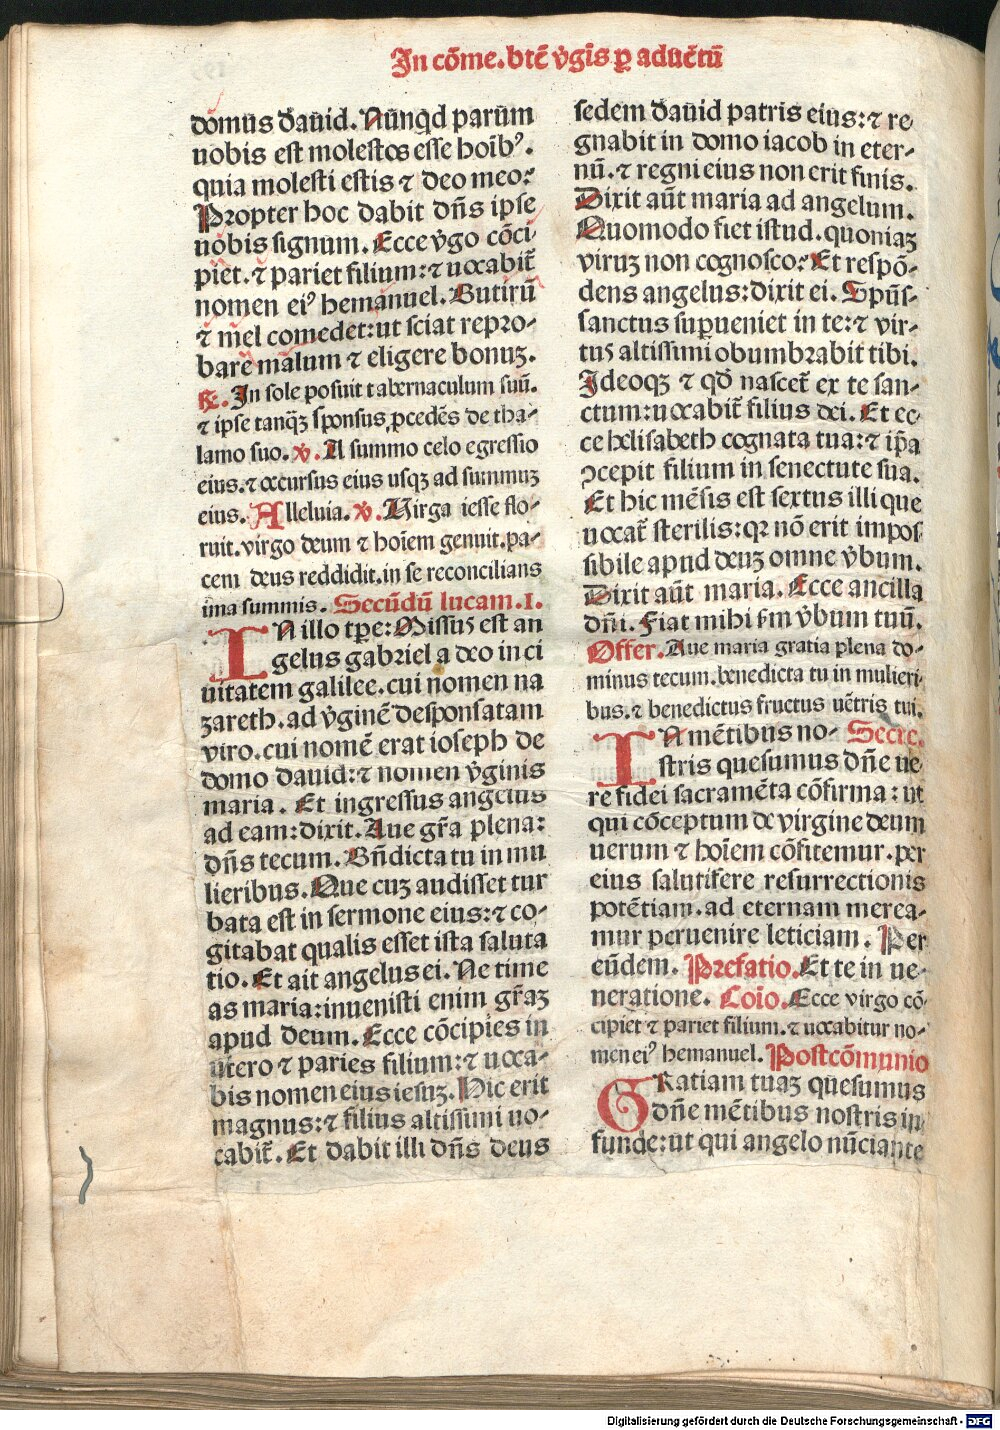 In cōme. btē v̄gīs ꝑ aduētū
domus dauid. Nūnqd parum
uobis est molestos esse hoīb⁹.
quia molesti estis ⁊ deo meo?
Propter hoc dabit dn̄s ipse
uobis signum. Ecce v̄go cōci-
piet. ⁊ pariet filium: ⁊ uocabit̄
nomen ei⁹ hemanuel. Butirū
⁊ mel comedet: ut sciat repro-
bare malum ⁊ eligere bonuꝫ.
℞. In sole posuit tabernaculum suū.
⁊ ipse tanqꝫ sponsus ꝓcedēs de tha-
lamo suo. ℣. A summo celo egressio
eius. ⁊ occursus eius usqꝫ ad summuꝫ
eius. Alleluia. ℣. Virga iesse flo-
ruit. virgo deum ⁊ hoīem genuit. pa-
cem deus reddidit. in se reconcilians
ima summis. Secūdū lucam. I.
IN illo tꝑe: Missus est an
gelus gabriel a deo in ci
uitatem galilee. cui nomen na
zareth. ad v̄ginē desponsatam
viro. cui nomē erat ioseph de
domo dauid: ⁊ nomen v̄ginis
maria. Et ingressus angelus
ad eam: dixit. Aue gr̄a plena:
dn̄s tecum. Bn̄dicta tu in mu
lieribus. Que cuꝫ audisset tur
bata est in sermone eius: ⁊ co-
gitabat qualis esset ista saluta
tio. Et ait angelus ei. Ne time
as maria: inuenisti enim gr̄aꝫ
apud deum. Ecce cōcipies in
utero ⁊ paries filium: ⁊ uoca-
bis nomen eius iesuꝫ. Hic erit
magnus: ⁊ filius altissimi uo-
cabit̄. Et dabit illi dn̄s deus
sedem dauid patris eius: ⁊ re
gnabit in domo iacob in eter-
nū. ⁊ regni eius non erit finis.
Dixit aūt maria ad angelum.
Quomodo fiet istud. quoniaꝫ
viruꝫ non cognosco? Et respō-
dens angelus: dixit ei. Spūs-
sanctus suꝑueniet in te: ⁊ vir-
tus altissimi obumbrabit tibi.
Ideoqꝫ ⁊ qd̄ nascet̄ ex te san-
ctum: uocabit̄ filius dei. Et ec-
ce helisabeth cognata tua: ⁊ ip̄a
ↄcepit filium in senectute sua.
Et hic mēsis est sextus illi que
uocat̄ sterilis: qꝛ nō erit impos
sibile apud deuꝫ omne v̄bum.
Dixit aūt maria. Ecce ancilla
dn̄i. Fiat mihi s̄m v̄bum tuū.
Offer. Aue maria gratia plena do-
minus tecum. benedicta tu in mulieri-
bus. ⁊ benedictus fructus uētris tui.
IN mētibus no- Secre.
stris quesumus dn̄e ue
re fidei sacramēta cōfirma: ut
qui cōceptum de virgine deum
uerum ⁊ hoīem cōfitemur. per
eius salutifere resurrectionis
potētiam. ad eternam merea-
mur peruenire leticiam. Per
eūdem. Prefatio. Et te in ue-
neratione. Coīo. Ecce virgo cō-
cipiet ⁊ pariet filium. ⁊ uocabitur no-
men ei⁹ hemanuel. Postcōmunio
GRatiam tuaꝫ quesumus
dn̄e mētibus nostris in-
funde: ut qui angelo nūciante
Digitalisierung gefördert durch die Deutsche Forschungsgemeinschaft - DFG